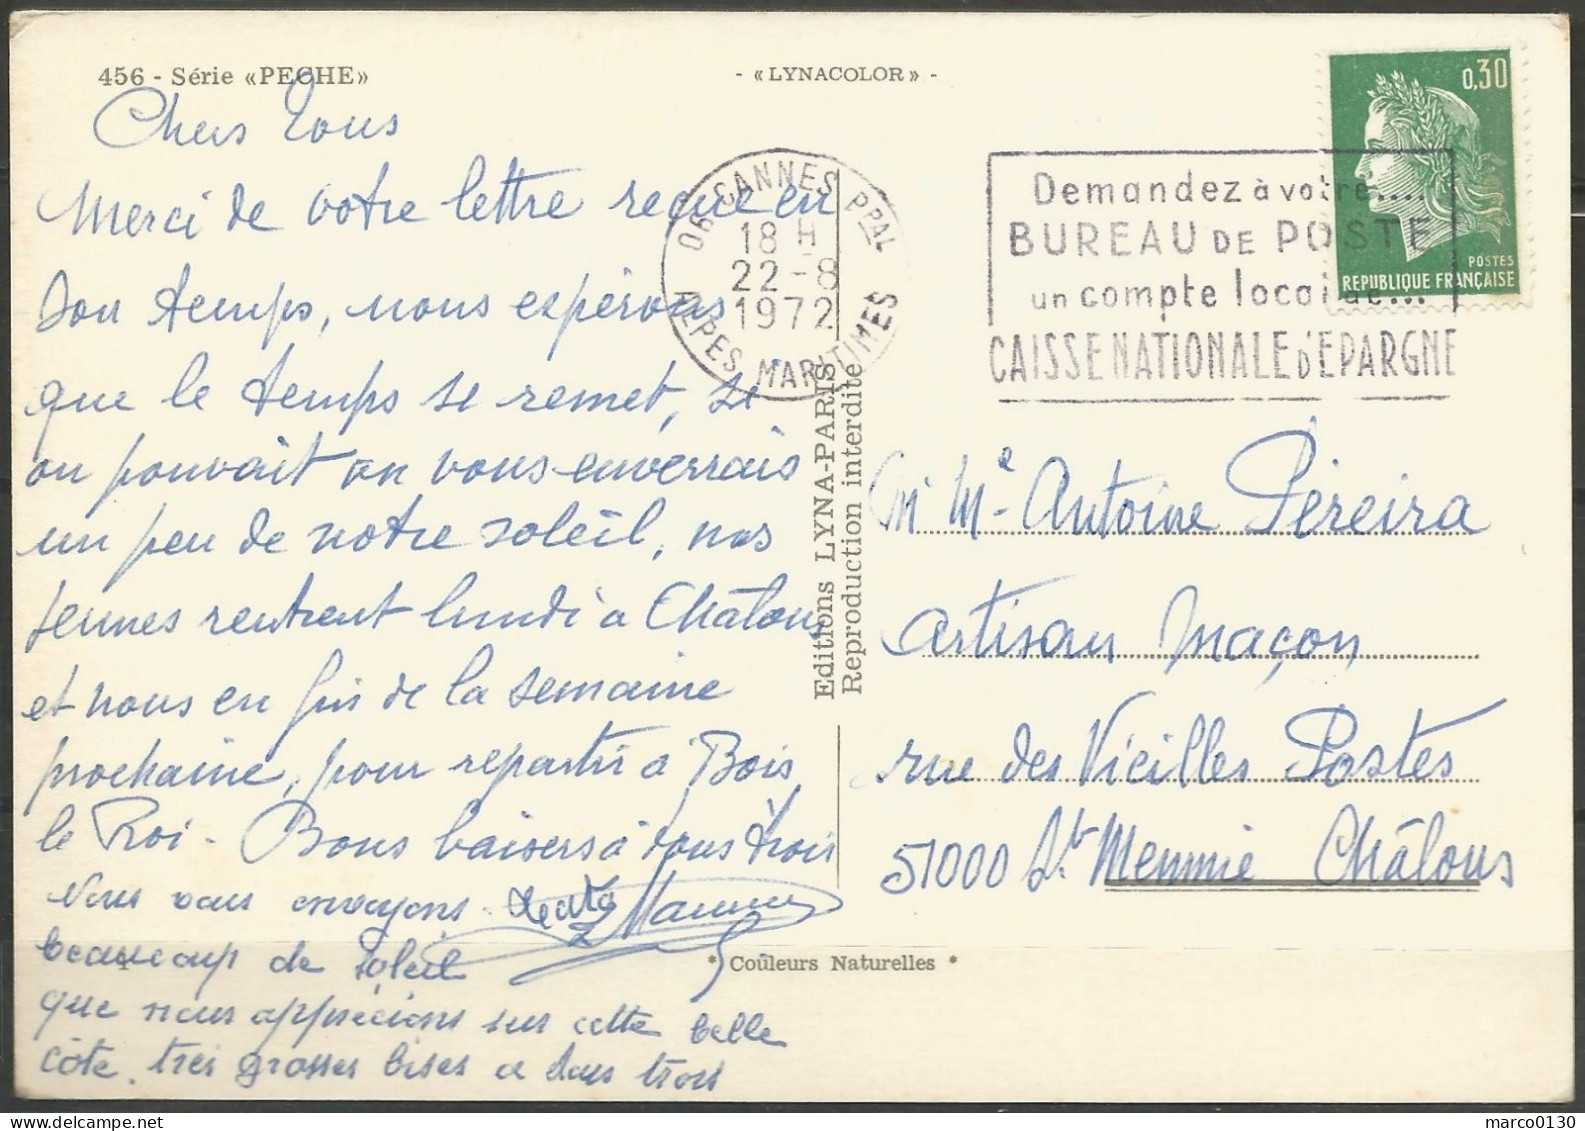 456 - Série «PECHE»
- «LYNACOLOR» -
0,30
POSTES
REPUBLIQUE FRANÇAISE
06 CANNES PPAL
18 H
22-8
1972
ALPES MARITIMES
Demandez à votre....
BUREAU DE POSTE
un compte local de...
CAISSE NATIONALE D'EPARGNE
Chers Tous
Merci de votre lettre reçue en
son temps, nous espérons
que le temps se remet, si
on pouvait on vous enverrais
un peu de notre soleil, nos
jeunes rentrent lundi à Châlons
et nous en fin de la semaine
prochaine, pour repartir à Bois
le Roi - Bons baisers à vous trois
Vous vous envoyons
beaucoup de soleil
que nous apprécions sur cette belle
côte. très grosses bises a vous trois
Editions LYNA-PARIS
Reproduction interdite
M Me Antoine Péreira
artisan maçon
rue des Vieilles Postes
51000 St Memmie Châlons
* Couleurs Naturelles *
marco0130